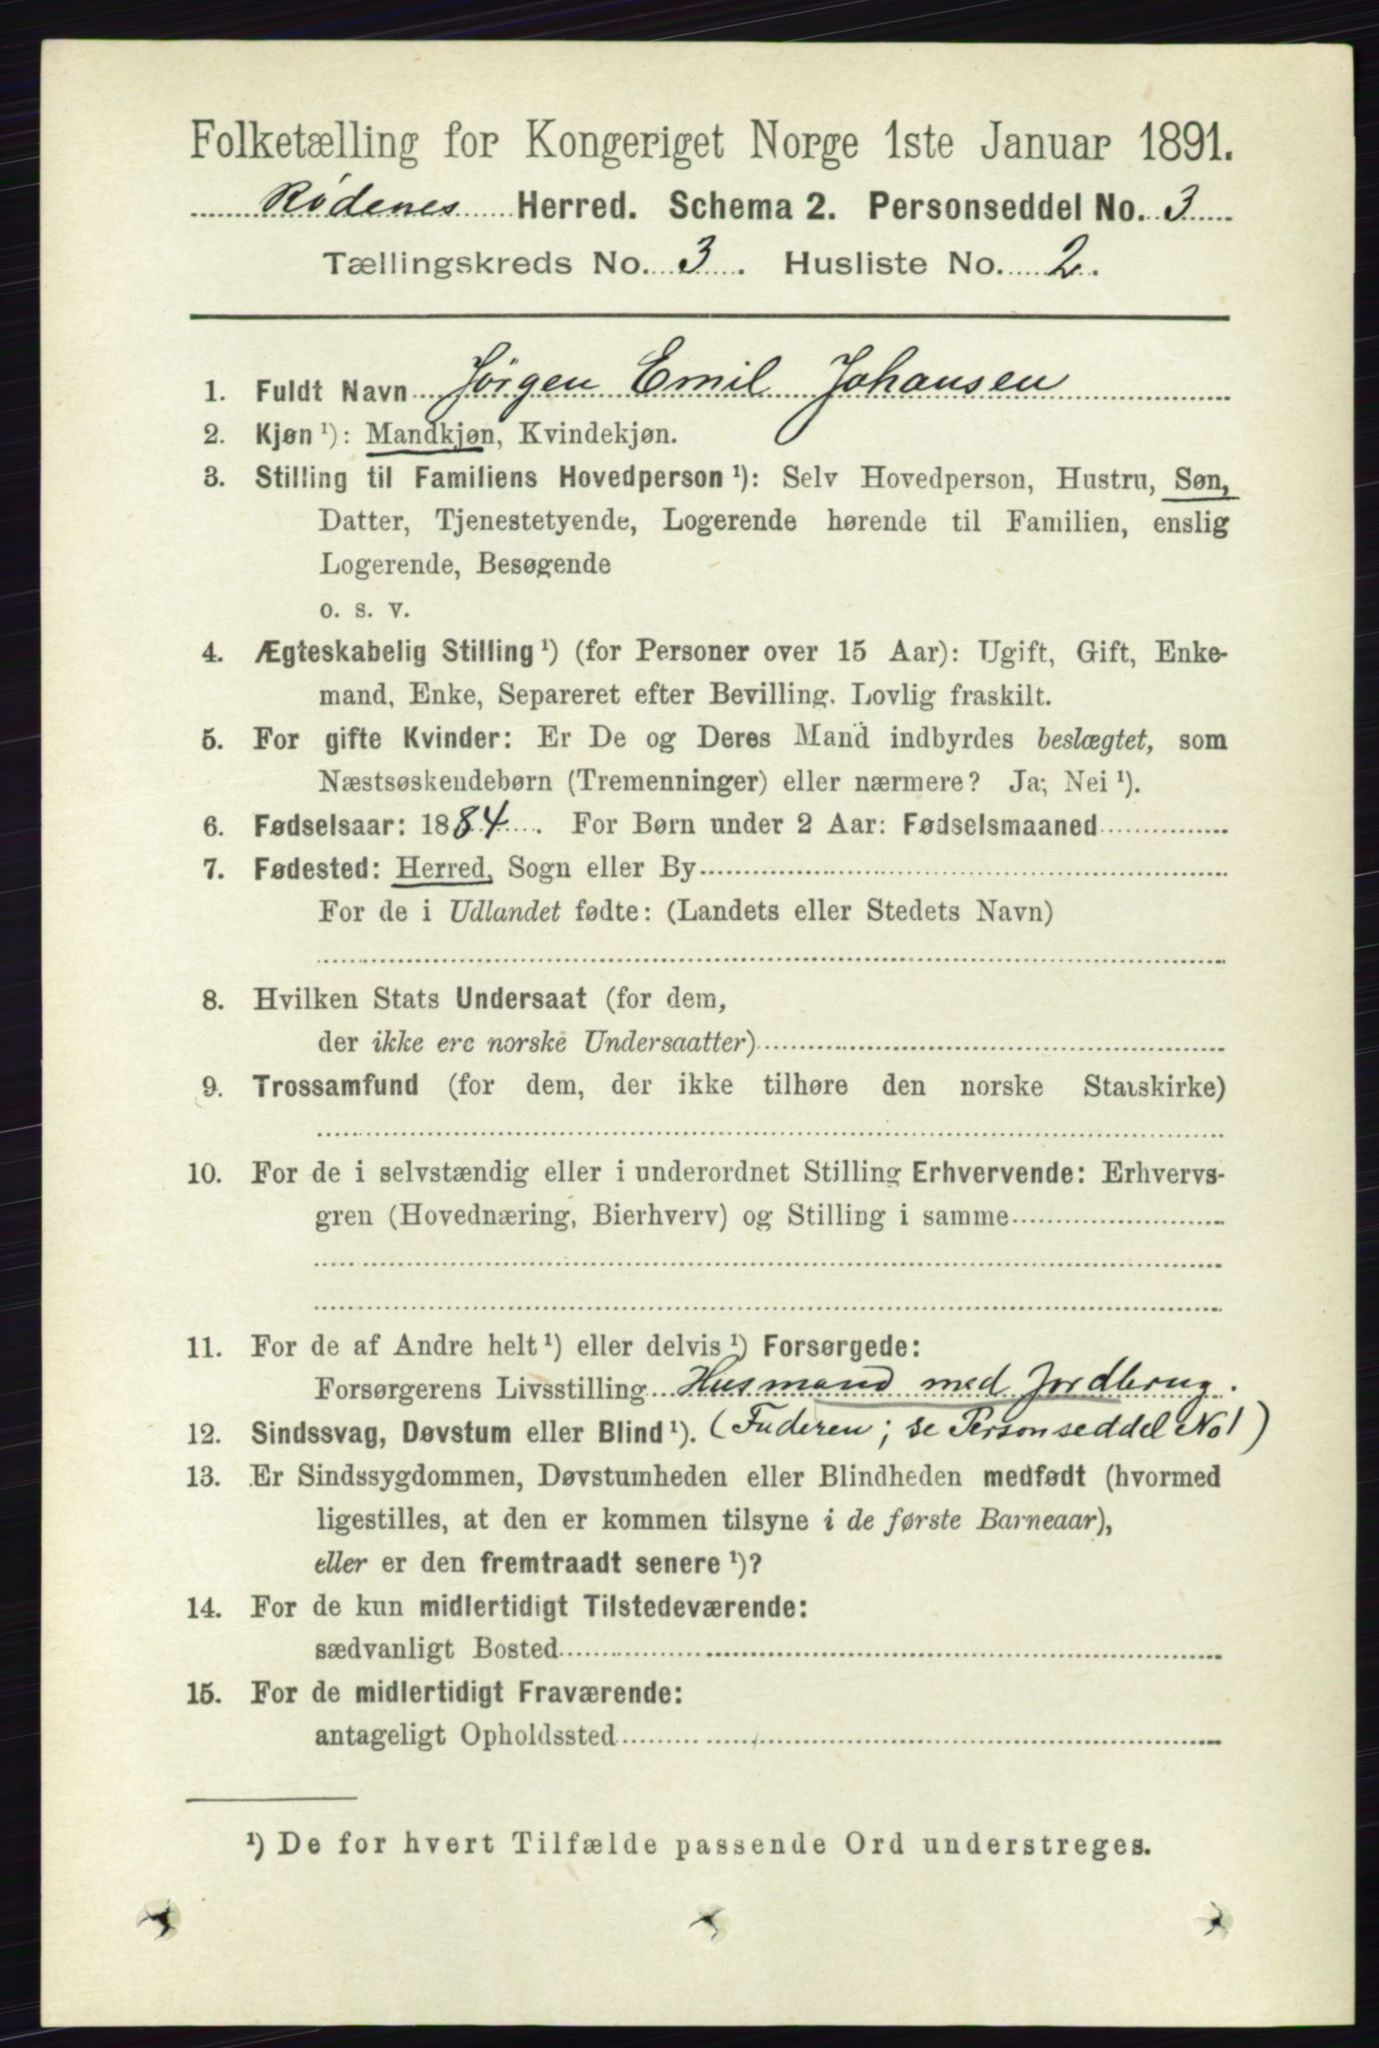 Folketælling for Kongeriget Norge 1ste Januar 1891.
Rödenes Herred. Schema 2. Personseddel No. 3
Tællingskreds No. 3. Husliste No. 2.
1. Fuldt Navn Jörgen Emil Johansen
2. Kjøn ¹): Mandkjøn, Kvindekjøn.
3. Stilling til Familiens Hovedperson ¹): Selv Hovedperson, Hustru, Søn,
Datter, Tjenestetyende, Logerende hørende til Familien, enslig
Logerende, Besøgende
o. s. v.
4. Ægteskabelig Stilling ¹) (for Personer over 15 Aar): Ugift, Gift, Enke-
mand, Enke, Separeret efter Bevilling. Lovlig fraskilt.
5. For gifte Kvinder: Er De og Deres Mand indbyrdes beslægtet, som
Næstsøskendebørn (Tremenninger) eller nærmere? Ja; Nei ¹).
6. Fødselsaar: 1884. For Børn under 2 Aar: Fødselsmaaned
7. Fødested: Herred, Sogn eller By
For de i Udlandet fødte: (Landets eller Stedets Navn)
8. Hvilken Stats Undersaat (for dem,
der ikke ere norske Undersaatter)
9. Trossamfund (for dem, der ikke tilhøre den norske Statskirke)
10. For de i selvstændig eller i underordnet Stilling Erhvervende: Erhvervs-
gren (Hovednæring, Bierhverv) og Stilling i samme
11. For de af Andre helt ¹) eller delvis ¹) Forsørgede:
Forsørgerens Livsstilling Husmand med Jordbrug.
12. Sindssvag, Døvstum eller Blind ¹). (Faderen; se Personseddel No 1)
13. Er Sindssygdommen, Døvstumheden eller Blindheden medfødt (hvormed
ligestilles, at den er kommen tilsyne i de første Barneaar),
eller er den fremtraadt senere ¹)?
14. For de kun midlertidigt Tilstedeværende:
sædvanligt Bosted
15. For de midlertidigt Fraværende:
antageligt Opholdssted
¹) De for hvert Tilfælde passende Ord understreges.